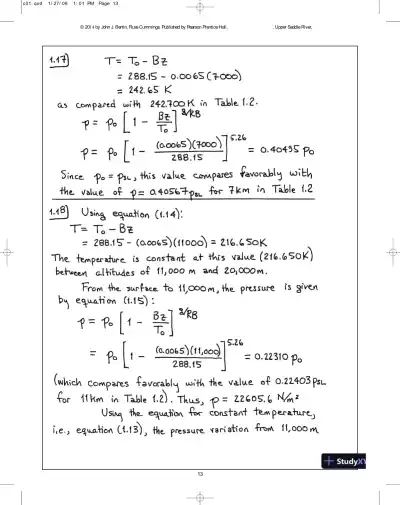 c01.qxd 1/27/06 1:01 PM Page 13
© 2014 by John J. Bertin, Russ Cummings. Published by Pearson Prentice Hall, Upper Saddle River,
1.17) T = T₀ - Bz
= 288.15 - 0.0065 (7000)
= 242.65 K
as compared with 242.700K in Table 1.2.
p = p₀ [1 - Bz/T₀]^g/RB
p = p₀ [1 - (0.0065)(7000)/288.15]^5.26 = 0.40495 p₀
Since p₀ = pSL, this value compares favorably with
the value of p = 0.40567pSL for 7km in Table 1.2
1.18) Using equation (1.14):
T = T₀ - Bz
= 288.15 - (0.0065)(11000) = 216.650K
The temperature is constant at this value (216.650K)
between altitudes of 11,000 m and 20,000m.
From the surface to 11,000m, the pressure is given
by equation (1.15):
p = p₀ [1 - Bz/T₀]^g/RB
= p₀ [1 - (0.0065)(11,000)/288.15]^5.26 = 0.22310 p₀
(which compares favorably with the value of 0.22403pSL
for 11km in Table 1.2). Thus, p = 22605.6 N/m²
Using the equation for constant temperature,
i.e., equation (1.13), the pressure variation from 11,000m
13
StudyX